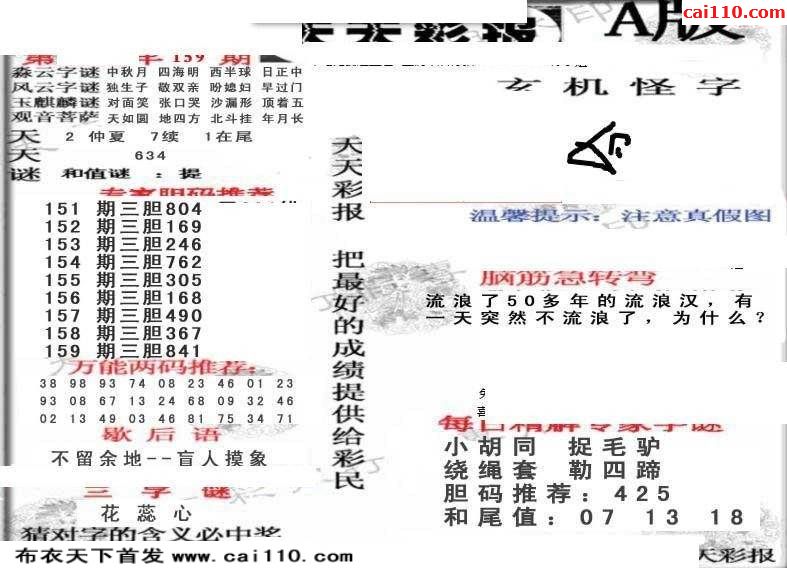 cai110.com
天天彩报 A版
第 年 159 期
淼云字谜 中秋月 四海明 西半球 日正中
风云字谜 独生子 敬双亲 盼媳妇 早过门
玉麒麟谜 对面笑 张口哭 沙漏形 顶着五
观音菩萨 天如圆 地四方 北斗挂 年月长
天 2 仲夏 7续 1在尾
天 634
谜 和值谜 : 提
专家胆码推荐
151 期三胆804
152 期三胆169
153 期三胆246
154 期三胆762
155 期三胆305
156 期三胆168
157 期三胆490
158 期三胆367
159 期三胆841
万能两码推荐:
38 98 93 74 08 23 46 01 23
93 08 67 13 24 68 09 32 46
02 13 49 03 46 81 75 34 71
歇后语
不留余地--盲人摸象
三字谜
花蕊心
猜对字的含义必中奖
布衣天下首发 www.cai110.com
天天彩报 把最好的成绩提供给彩民
玄机怪字
温馨提示: 注意真假图
脑筋急转弯
流浪了50多年的流浪汉,有
一天突然不流浪了,为什么?
每日精解专家字谜
小胡同 捉毛驴
绕绳套 勒四蹄
胆码推荐: 425
和尾值: 07 13 18
天彩报